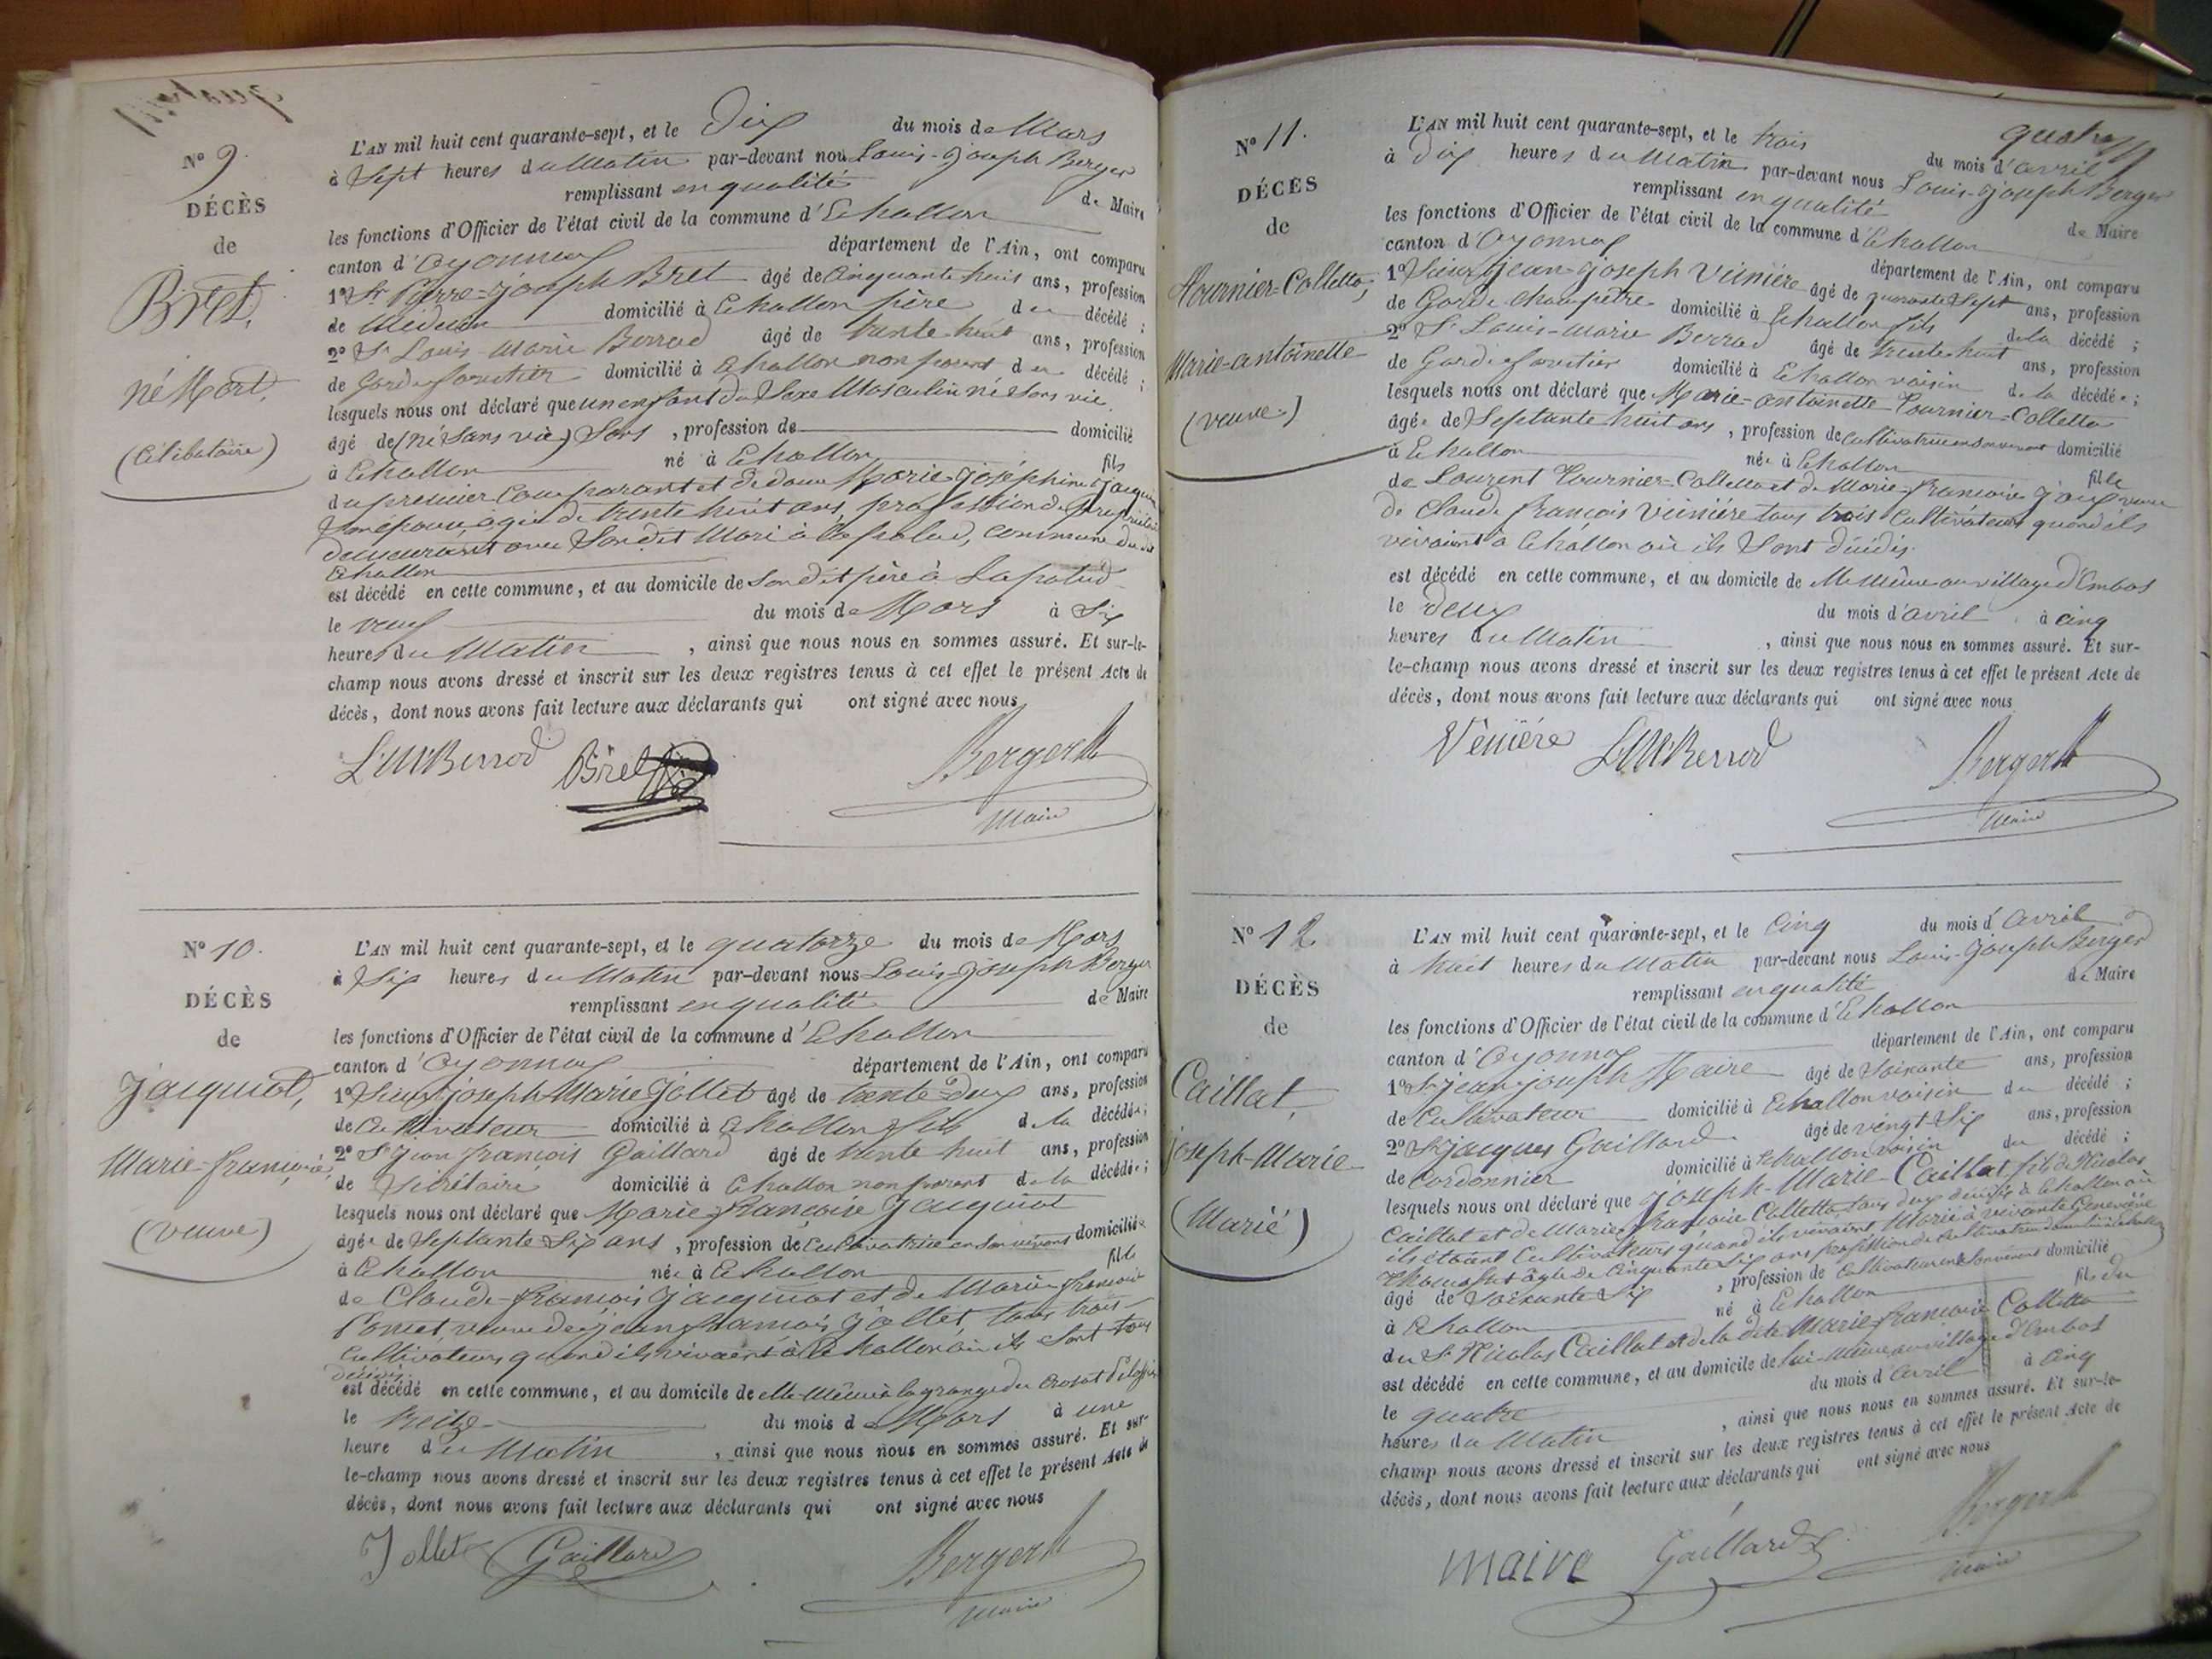 N° 9.
DÉCÈS
de
Bret,
né Mort.
(Célibataire)
L'AN mil huit cent quarante-sept, et le Dix du mois de Mars
à Sept heures du Matin par-devant nous Louis-Joseph Berger
remplissant en qualité de Maire
les fonctions d'Officier de l'état civil de la commune d'Echallon
canton d'Oyonnax département de l'Ain, ont comparu
1° Sr Pierre-Joseph Bret âgé de Cinquante huit ans, profession
de Médecin domicilié à Echallon père du décédé ;
2° Sr Louis-Marie Berrod âgé de trente huit ans, profession
de Garde forestier domicilié à Echallon non parent du décédé ;
lesquels nous ont déclaré que un enfant du Sexe Masculin né Sans vie
âgé de (né Sans vie) Sans , profession de domicilié
à Echallon né à Echallon fils
du premier Comparant et de dame Marie-Joséphine
Son épouse, âgée de trente huit ans, profession de
demeurant avec Son dit Mari à la palud, Commune du dit
Echallon
est décédé en cette commune, et au domicile de Son dit père à Lapalud
le neuf du mois de Mars à Six
heures du Matin , ainsi que nous nous en sommes assuré. Et sur-le-
champ nous avons dressé et inscrit sur les deux registres tenus à cet effet le présent Acte de
décès, dont nous avons fait lecture aux déclarants qui ont signé avec nous
LMBerrod Bret Berger
Maire
N° 10.
DÉCÈS
de
Jacquiot,
Marie-françoise,
(veuve)
L'AN mil huit cent quarante-sept, et le quatorze du mois de Mars
à Six heures du Matin par-devant nous Louis-Joseph Berger
remplissant en qualité de Maire
les fonctions d'Officier de l'état civil de la commune d'Echallon
canton d'Oyonnax département de l'Ain, ont comparu
1° Sieur Joseph-Marie Jollet âgé de trente-deux ans, profession
de Cultivateur domicilié à Echallon fils de la décédée ;
2° Sr Jean françois Gaillard âgé de trente huit ans, profession
de Sécrétaire domicilié à Echallon non parent de la décédée ;
lesquels nous ont déclaré que Marie-françoise Jacquiot
âgée de Septante-Six ans , profession de Cultivatrice en Son vivant domiciliée
à Echallon née à Echallon fille
de Claude-françois Jacquiot et de Marie-françoise
Poncet, veuve de Jean françois Jollet, tous trois
Cultivateurs quand ils vivaient à Echallon où ils Sont tous
décédés
est décédé en cette commune, et au domicile de elle-Même à la grange du Crosat
le treize du mois de Mars à une
heure du Matin , ainsi que nous nous en sommes assuré. Et sur-
le-champ nous avons dressé et inscrit sur les deux registres tenus à cet effet le présent Acte de
décès, dont nous avons fait lecture aux déclarants qui ont signé avec nous
Jollet Gaillard Berger
Maire
quatre
N° 11.
DÉCÈS
de
Tournier-Colletta,
Marie-antoinette
(veuve)
L'AN mil huit cent quarante-sept, et le trois du mois d'avril
à Dix heures du Matin par-devant nous Louis-Joseph Berger
remplissant en qualité de Maire
les fonctions d'Officier de l'état civil de la commune d'Echallon
canton d'Oyonnax département de l'Ain, ont comparu
1° Sieur Jean-Joseph Vénière âgé de quarante Sept ans, profession
de Garde Champêtre domicilié à Echallon fils de la décédé ;
2° Sr Louis-Marie Berrod âgé de trente huit ans, profession
de Garde forestier domicilié à Echallon voisin de la décédée ;
lesquels nous ont déclaré que Marie-antoinette Tournier-Colletta
âgée de Septante huit ans , profession de Cultivatrice en Son vivant domicilié
à Echallon née à Echallon fille
de Laurent Tournier-Colletta et de Marie-françoise veuve
de Claude françois Vénière tous trois Cultivateurs quand ils
vivaient à Echallon où ils Sont décédés.
est décédé en cette commune, et au domicile de elle Même au village d'Embos
le Deux du mois d'avril à cinq
heures du Matin , ainsi que nous nous en sommes assuré. Et sur-
le-champ nous avons dressé et inscrit sur les deux registres tenus à cet effet le présent Acte de
décès, dont nous avons fait lecture aux déclarants qui ont signé avec nous
Vénière LMBerrod Berger
Maire
N° 12
DÉCÈS
de
Caillat,
Joseph-Marie
(Marié)
L'AN mil huit cent quarante-sept, et le Cinq du mois d'avril
à huit heures du Matin par-devant nous Louis-Joseph Berger
remplissant en qualité de Maire
les fonctions d'Officier de l'état civil de la commune d'Echallon
canton d'Oyonnax département de l'Ain, ont comparu
1° Sr Jean-Joseph Maire âgé de Soixante ans, profession
de Cultivateur domicilié à Echallon voisin du décédé ;
2° Sr Jacques Gaillard âgé de vingt Six ans, profession
de Cordonnier domicilié à Echallon voisin du décédé ;
lesquels nous ont déclaré que Joseph-Marie Caillat fils de Nicolas
Caillat et de Marie françoise Colletta tous deux décédés à Echallon où
ils étaient Cultivateurs quand ils vivaient Marié à vivante Geneviève
âgée de Cinquante Six ans profession de Cultivatrice domiciliée à Echallon
âgé de Soixante Six , profession de Cultivateur en Son vivant domicilié
à Echallon né à Echallon fils du
du Sr Nicolas Caillat et de la dite Marie françoise Colletta
est décédé en cette commune, et au domicile de lui-Même au village d'Embos
le quatre du mois d'avril à cinq
heures du Matin , ainsi que nous nous en sommes assuré. Et sur-le-
champ nous avons dressé et inscrit sur les deux registres tenus à cet effet le présent Acte de
décès, dont nous avons fait lecture aux déclarants qui ont signé avec nous
maire Gaillard Berger
Maire